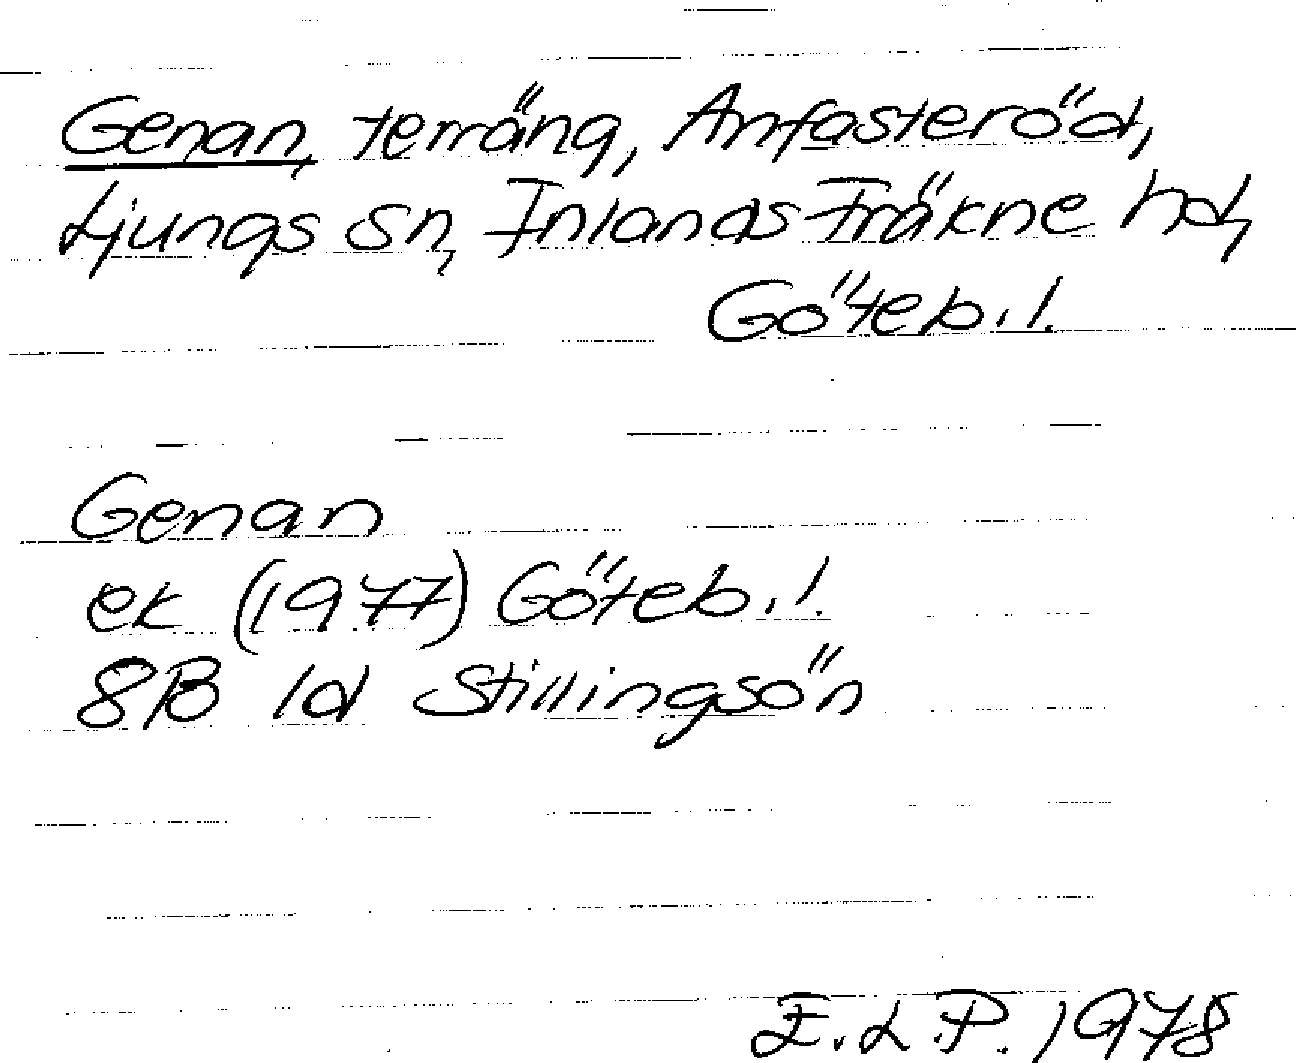 Genan, terräng, Anfasteröd,
Ljungs sn, Inlands Fräkne hd,
Göteb.l.
Genan
ek (1977) Göteb.l.
8B 1d Stillingsön
E.L.P. 1978